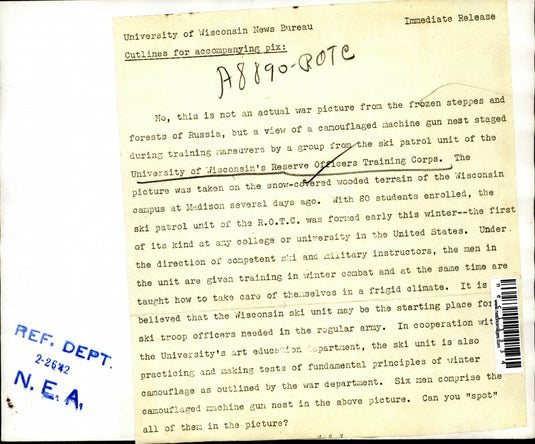 University of Wisconsin News Bureau
Immediate Release
Cutlines for accompanying pix:
A8890-ROTC
No, this is not an actual war picture from the frozen steppes and
forests of Russia, but a view of a camouflaged machine gun nest staged
during training maneuvers by a group from the ski patrol unit of the
University of Wisconsin's Reserve Officers Training Corps. The
picture was taken on the snow-covered wooded terrain of the Wisconsin
campus at Madison several days ago. With 80 students enrolled, the
ski patrol unit of the R.O.T.C. was formed early this winter--the first
of its kind at any college or university in the United States. Under
the direction of competent ski and military instructors, the men in
the unit are given training in winter combat and at the same time are
taught how to take care of themselves in a frigid climate. It is
believed that the Wisconsin ski unit may be the starting place for
ski troop officers needed in the regular army. In cooperation wit
the University's art education department, the ski unit is also
practicing and making tests of fundamental principles of winter
camouflage as outlined by the war department. Six men comprise the
camouflaged machine gun nest in the above picture. Can you "spot"
all of them in the picture?
REF. DEPT.
2-26'42
N.E.A.